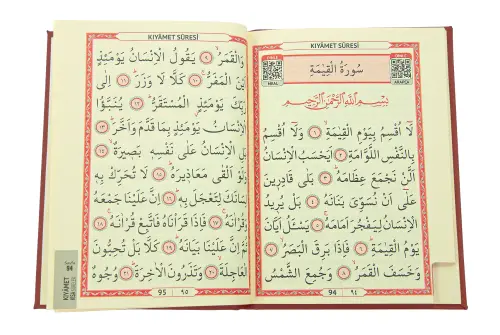 KIYÂMET SÛRESİ
سُورَةُ الْقِيٰمَةِ
MEAL
ARAPÇA
بِسْمِ اللّٰهِ الرَّحْمٰنِ الرَّحِيمِ
لَٓا اُقْسِمُ بِيَوْمِ الْقِيٰمَةِ ﴿١﴾ وَلَٓا اُقْسِمُ
بِالنَّفْسِ اللَّوَّامَةِ ﴿٢﴾ اَيَحْسَبُ الْاِنْسَانُ
اَلَّنْ نَجْمَعَ عِظَامَهُ ﴿٣﴾ بَلٰى قَادِرِينَ
عَلٰٓى اَنْ نُسَوِّيَ بَنَانَهُ ﴿٤﴾ بَلْ يُرِيدُ
الْاِنْسَانُ لِيَفْجُرَ اَمَامَهُ ﴿٥﴾ يَسْـَٔلُ اَيَّانَ
يَوْمُ الْقِيٰمَةِ ﴿٦﴾ فَاِذَا بَرِقَ الْبَصَرُ ﴿٧﴾
وَخَسَفَ الْقَمَرُ ﴿٨﴾ وَجُمِعَ الشَّمْسُ
94 ٩٤
KIYÂMET SÛRESİ
وَالْقَمَرُ ﴿٩﴾ يَقُولُ الْاِنْسَانُ يَوْمَئِذٍ
اَيْنَ الْمَفَرُّ ﴿١٠﴾ كَلَّا لَا وَزَرَ ﴿١١﴾ اِلٰى
رَبِّكَ يَوْمَئِذٍ الْمُسْتَقَرُّ ﴿١٢﴾ يُنَبَّؤُا
الْاِنْسَانُ يَوْمَئِذٍ بِمَا قَدَّمَ وَاَخَّرَ ﴿١٣﴾
بَلِ الْاِنْسَانُ عَلٰى نَفْسِهِ بَصِيرَةٌ ﴿١٤﴾
وَلَوْ اَلْقٰى مَعَاذِيرَهُ ﴿١٥﴾ لَا تُحَرِّكْ بِهِ
لِسَانَكَ لِتَعْجَلَ بِهِ ﴿١٦﴾ اِنَّ عَلَيْنَا جَمْعَهُ
وَقُرْاٰنَهُ ﴿١٧﴾ فَاِذَا قَرَاْنَاهُ فَاتَّبِعْ قُرْاٰنَهُ ﴿١٨﴾
ثُمَّ اِنَّ عَلَيْنَا بَيَانَهُ ﴿١٩﴾ كَلَّا بَلْ تُحِبُّونَ
الْعَاجِلَةَ ﴿٢٠﴾ وَتَذَرُونَ الْاٰخِرَةَ ﴿٢١﴾ وُجُوهٌ
95 ٩٥
Sayfa
94
KIYÂMET